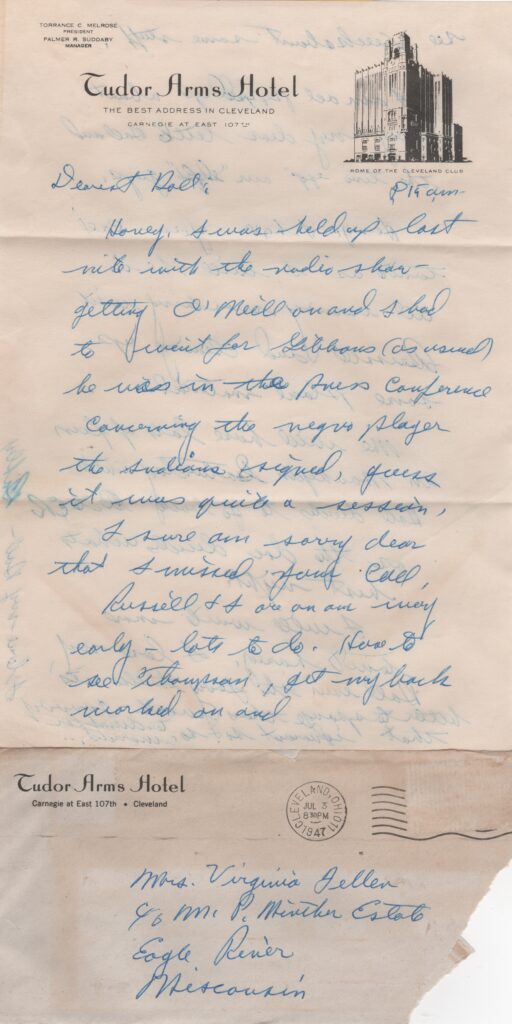 TORRANCE C. MELROSE
PRESIDENT
PALMER R. SUDDABY
MANAGER
Tudor Arms Hotel
THE BEST ADDRESS IN CLEVELAND
CARNEGIE AT EAST 107TH
HOME OF THE CLEVELAND CLUB
Dearest Doll; 815 am
Honey, I was held up last
nite with the radio show-
getting O'Neill on and I had
to wait for Gibbons (as usual)
he was in the press conference
concerning the negro player
the Indians signed, guess
it was quite a session,
I sure am sorry dear
that I missed your call,
Russell & I are on our way
early - lots to do. Have to
see Thompson, get my back
worked on and
Tudor Arms Hotel
Carnegie at East 107th • Cleveland
CLEVELAND, OHIO
JUL 3
8 30 PM
1947
Mrs. Virginia Feller
c/o M. P. Winther Estate
Eagle River
Wisconsin